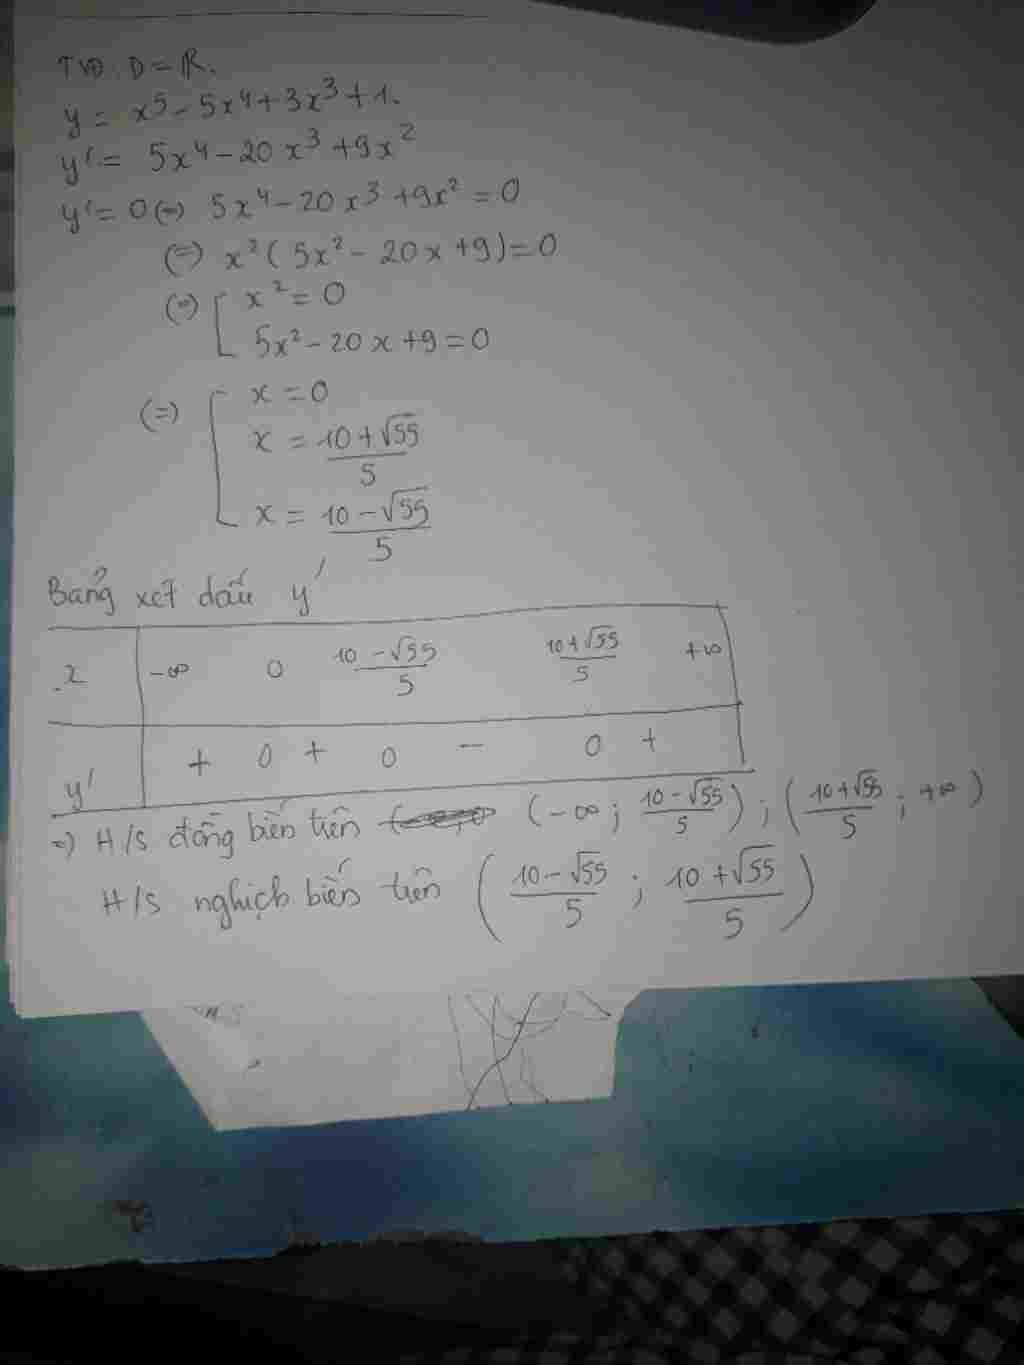 TXĐ: D = ℝ.
y = x⁵ - 5x⁴ + 3x³ + 1.
y' = 5x⁴ - 20x³ + 9x²
y' = 0 (=) 5x⁴ - 20x³ + 9x² = 0
(=) x² ( 5x² - 20x + 9) = 0
(=) [ x² = 0
5x² - 20x + 9 = 0
(=) [ x = 0
x = (10 + √55)/5
x = (10 - √55)/5
Bảng xét dấu y'
x -∞ 0 (10 - √55)/5 (10 + √55)/5 +∞
y' + 0 + 0 - 0 +
=) H/S đồng biến trên (-∞; (10 - √55)/5) ; ((10 + √55)/5 ; +∞)
H/S nghịch biến trên ((10 - √55)/5 ; (10 + √55)/5)